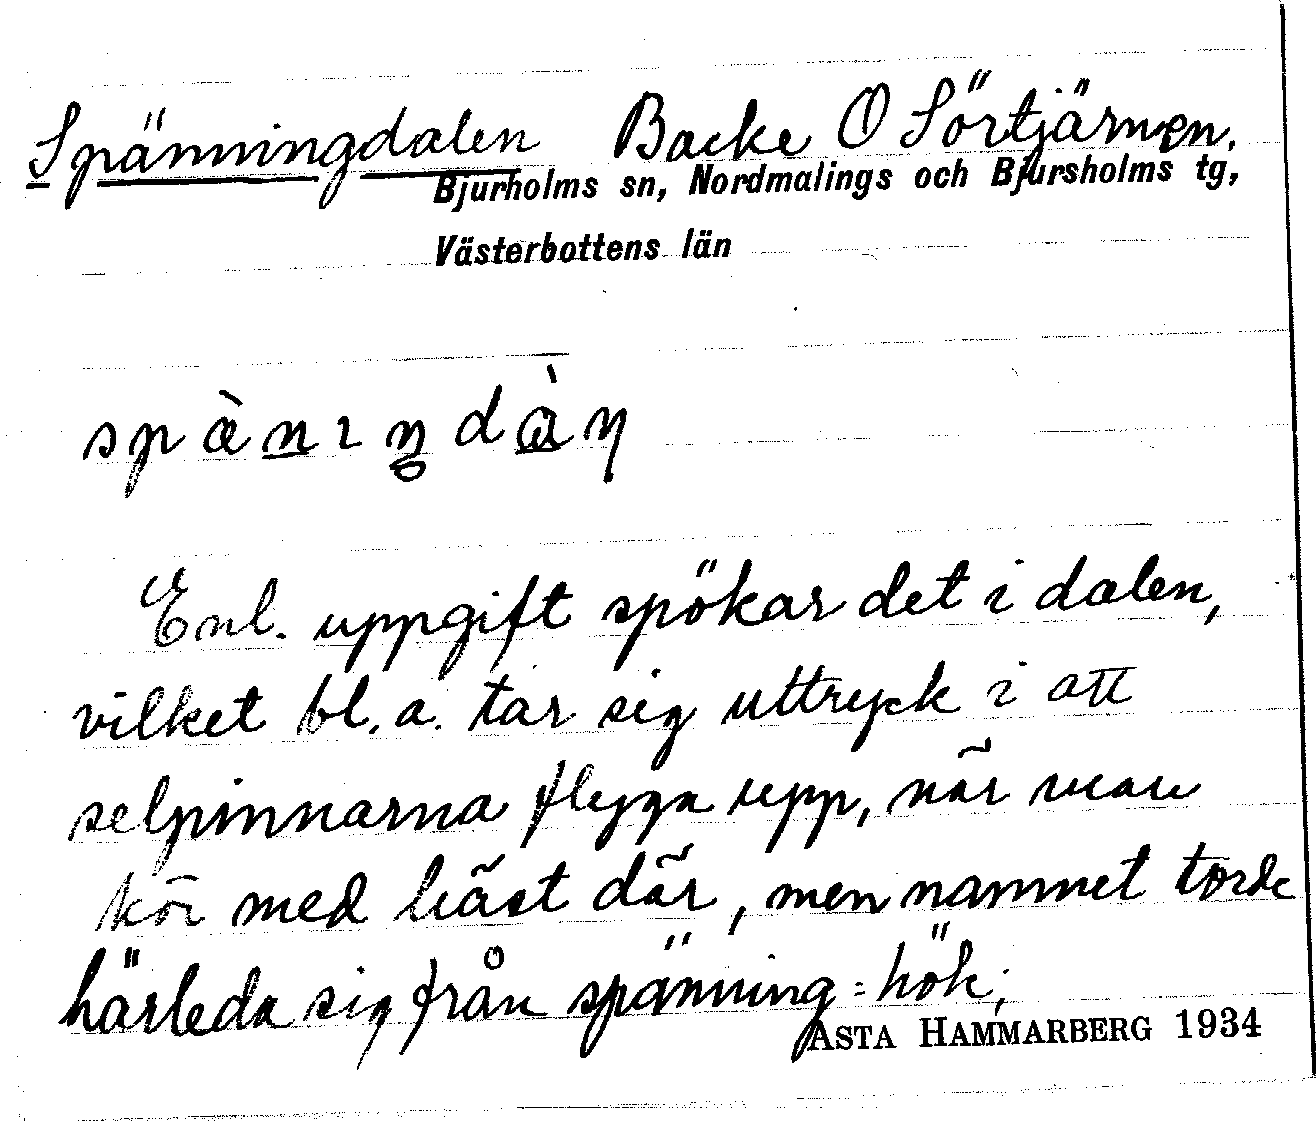 Spänningdalen Backe O Sörtjärnen.
Bjurholms sn, Nordmalings och Bjursholms tg,
Västerbottens län
spæ̀nıŋdàn
Enl. uppgift spökar det i dalen,
vilket bl.a. tar sig uttryck i att
selpinnarna flyga upp, när man
kör med häst där, men namnet torde
härleda sig från spänning = hök,
ASTA HAMMARBERG 1934